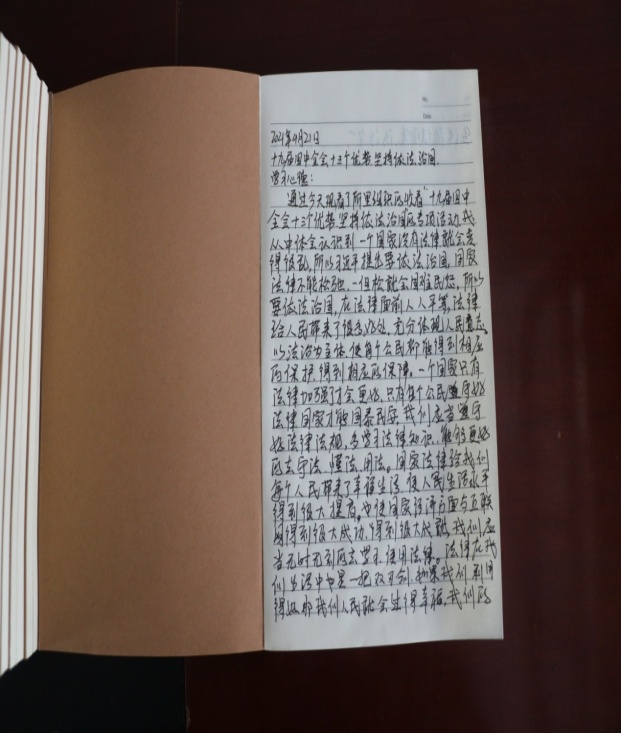 No.
Date.
2021年4月21日
十九届四中全会十三个优势坚持依法治国
学习心得：
通过今天观看了所里组织所收看"十九届四中
全会十三个优势坚持依法治国的专项活动,我
从中体会认识到一个国家没有法律就会变
得很乱,所以习近平提出要依法治国,国家
法律不能松弛、一但松就会国难民怨,所以
要依法治国,在法律面前人人平等,法律
给人民带来了很多好处,充分体现人民意志,
以法治为主体,使每个公民都能得到相应
的保护,得到相应的保障。一个国家只有
法律加强了才会更好,只有每个公民遵守好
法律国家才能国泰民安,我们应当遵守
好法律法规,多学习法律知识,能够更好
的去守法、懂法、用法。国家法律给我们
每个人民带来了幸福生活,使人民生活水平
得到很大提高,也使国家经济方面与互联
网得到很大成功,得到很大成就,我们应
当无时无刻的去学习使用法律。法律在我
们生活中也是一把双刃剑,如果我们利用
得好那我们人民就会过得幸福,我们的